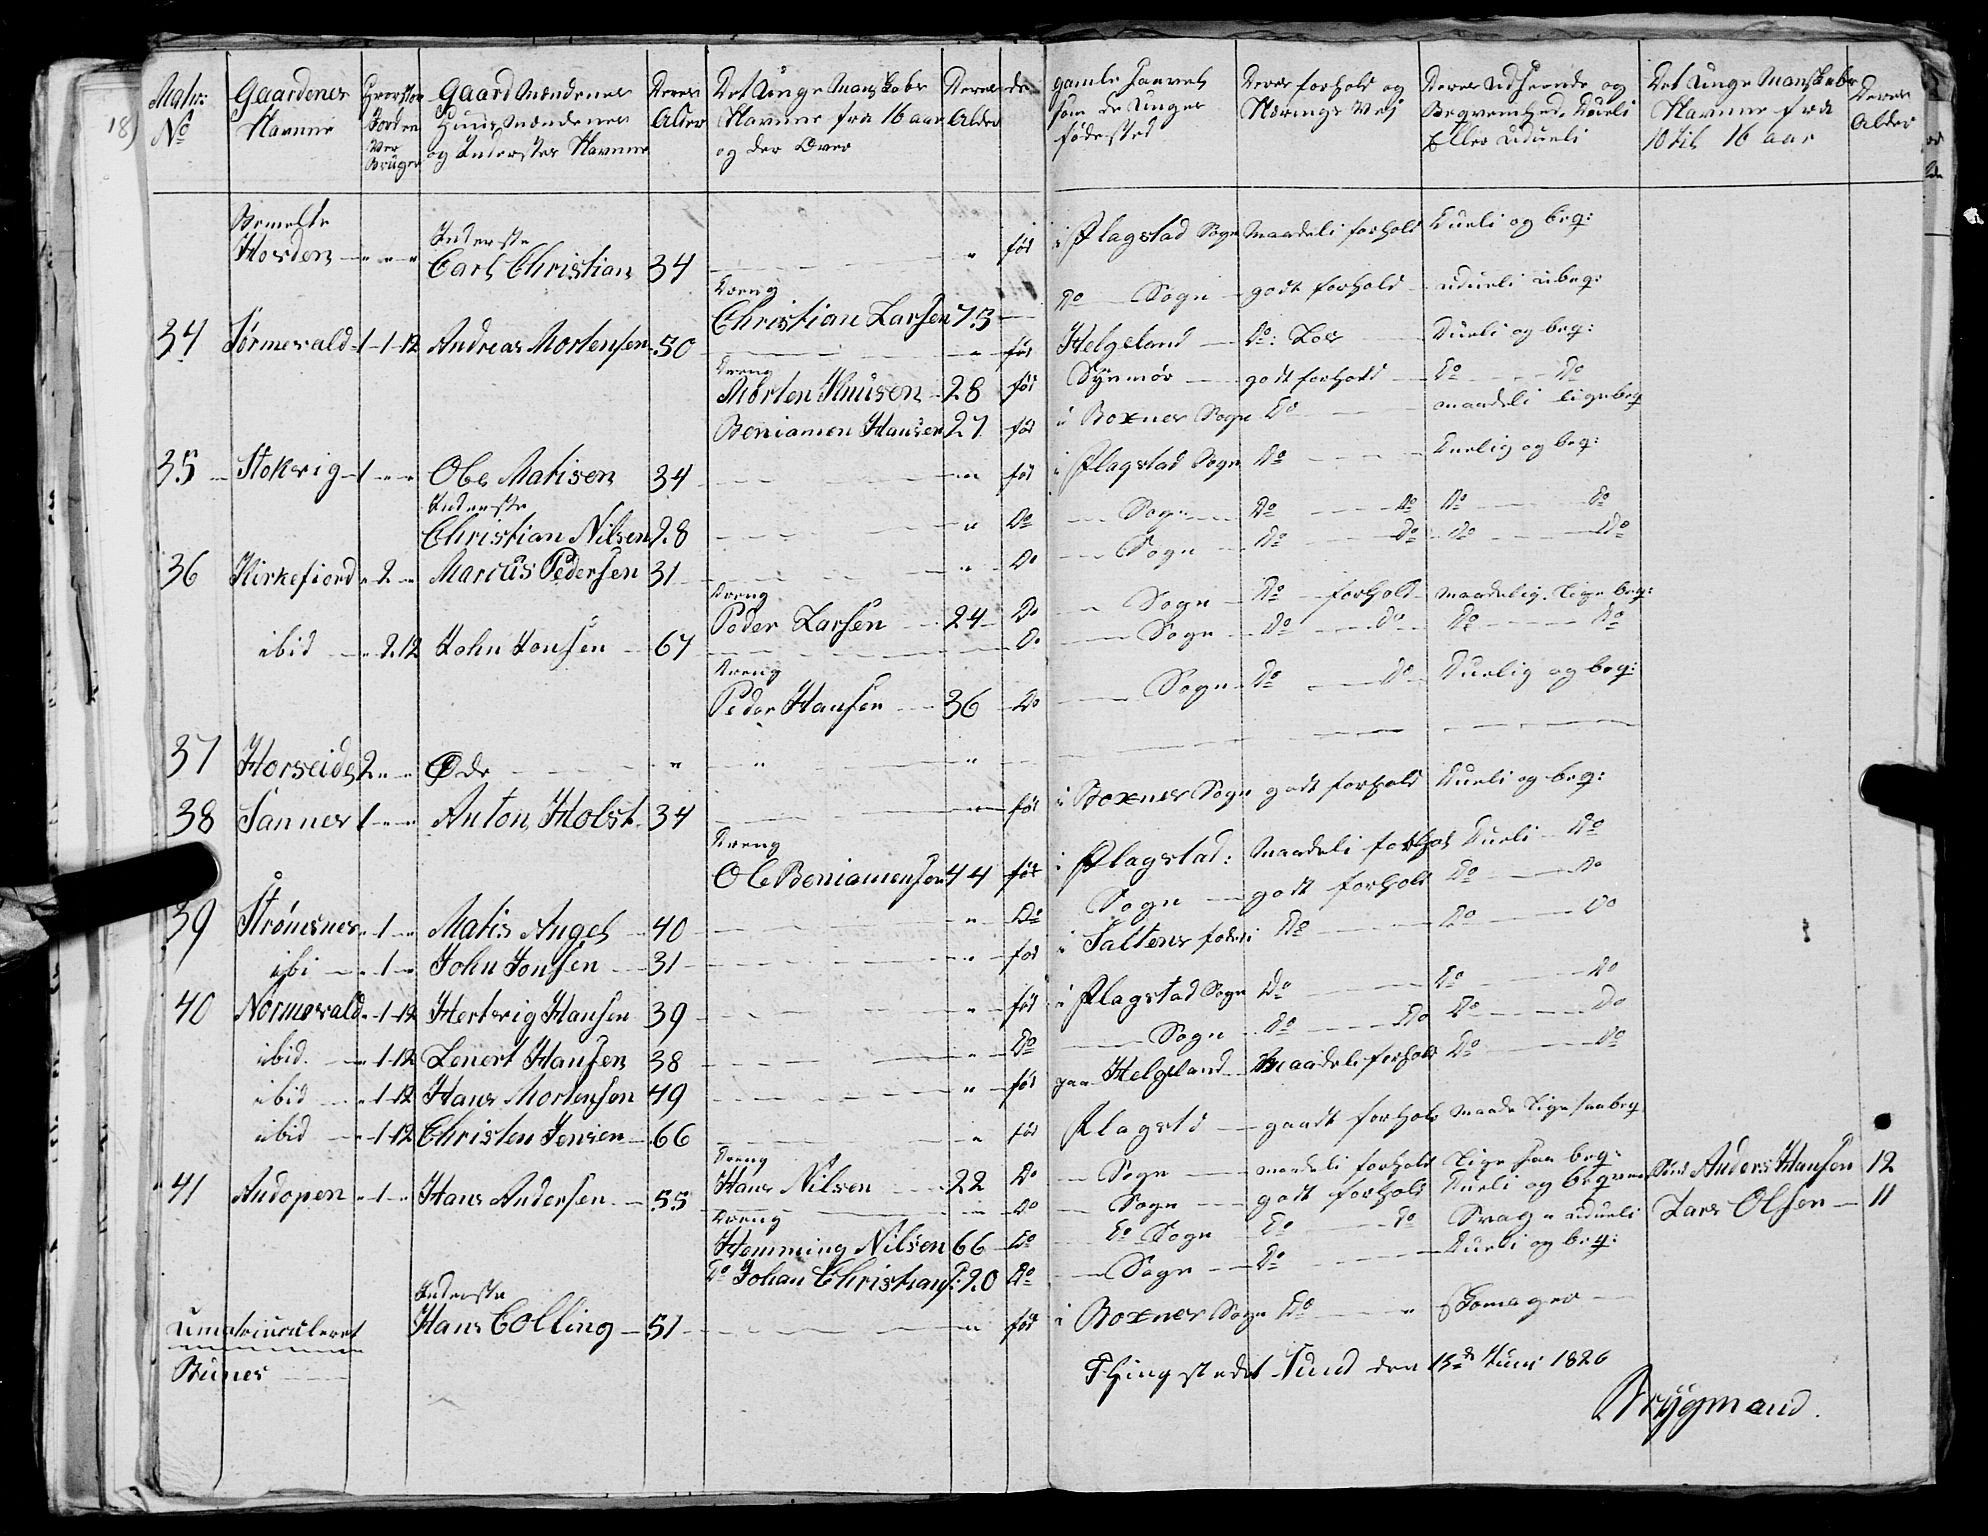 18)
Matr: No | Gaardenes Navne | Hvorstor Jorden Ver Bruger | Gaard Mændenes Huus Mændenes og Inderster Navne | Deres Alder | Det Unge Mandskabs Navne fra 16 aar og der Over | Deres Alder | de gamle saavel som de Unges fødested | Deres forhold og Nærings Vej | Deres Udseende og Beqvemhed, Dueli Eller udueli | Det Unge Mandskabs Navne fra 10 til 16 aar | Deres Alder
Bemelte Horden | Inderste Carl Christian | 34 | " | fød i Flagstad Sogn | Maadeli forhold | Dueli og beq:
Dreng Christian Larsen 75 | Do Sogn | godt forhold | udueli ubeq:
34 | Sørmevald | 1-1-12 | Andreas Mortensen | 50 | " | fød Helgeland | Do: Los | Dueli og beq:
Dreng Morten Knusen 28 | fød Synmør | godt forhold | Do Do
Beniamen Hansen 27 | fød i Boxnes Sogn | Do | maadeli ligebeq
35 | Stokvig | 1 " " | Ole Matisen | 34 | " | fød i Flagstad Sogn | Do | Duelig og beq:
Inderste Christian Nilsen 28 | " | Do Sogn | Do Do | Do Do
36 | Kirkefiord | " 2 " | Marcus Pedersen | 31 | " | Do Sogn | Do Do | Do Do
Dreng Peder Larsen 24 | Do Sogn | Do forhold | maadelig. Lige beq:
ibid | " 2 12 | John Jonsen | 67 | Do Sogn | Do Do | Do Do
Dreng Peder Hansen 36 | Do Sogn | Do Do | Duelig og beq:
37 | Horseide | 2 " " | Øde | " | " | "
38 | Sannes | 1 " " | Anton Holst | 34 | " | fød i Boxnes Sogn | godt forhold | Dueli og beq:
Dreng Ole Beniamensen 44 | fød i Flagstad: | Maadeli forhol | Dueli Do
39 | Strømsnes | " 1 " | Matis Angel | 40 | " | Do Sogn | godt forhold | Do Do
ibi | " 1 " | John Jonsen | 31 | " | fød i Saltens foderi | Do | Do Do
40 | Normevald | " 1-12 | Hertvig Hansen | 39 | " | fød i Flagstad Sogn | Do | Do Do
ibid. | " 1-12 | Lenert Hansen | 38 | " | Do Sogn | Do Do | Do Do
ibid | " 1-12 | Hans Mortensen | 49 | " | fød paa Helgeland | Maadeli forhold | Do Do
ibid | " 1-12 | Christen Jensen | 66 | " | fød Flagstd | gaadt forhold | Maade Lige saabeq
Dreng Hans Nilsen 22 | Do Sogn | maadeli forhold | Lige saa beq: | Anders Hansen | 12
41 | Andopen | " 1 " | Hans Andersen | 55 | " | Do Sogn | godt forhold | Dueli og beqvem | Lars Olsen | 11
Dreng Hemming Nilsen 66 | Do Do Sogn | Do Do | Svag " udueli
Do Johan Christians: 20 | Do Sogn | Do | Dueli og beq:
Umatriculeret Bunes | Inderste Hans Colling | 51 | " | fød i Boxnes Sogn | Do " | Skomager
Thingstedet Sund den 15de Juni 1826
Brygmand.